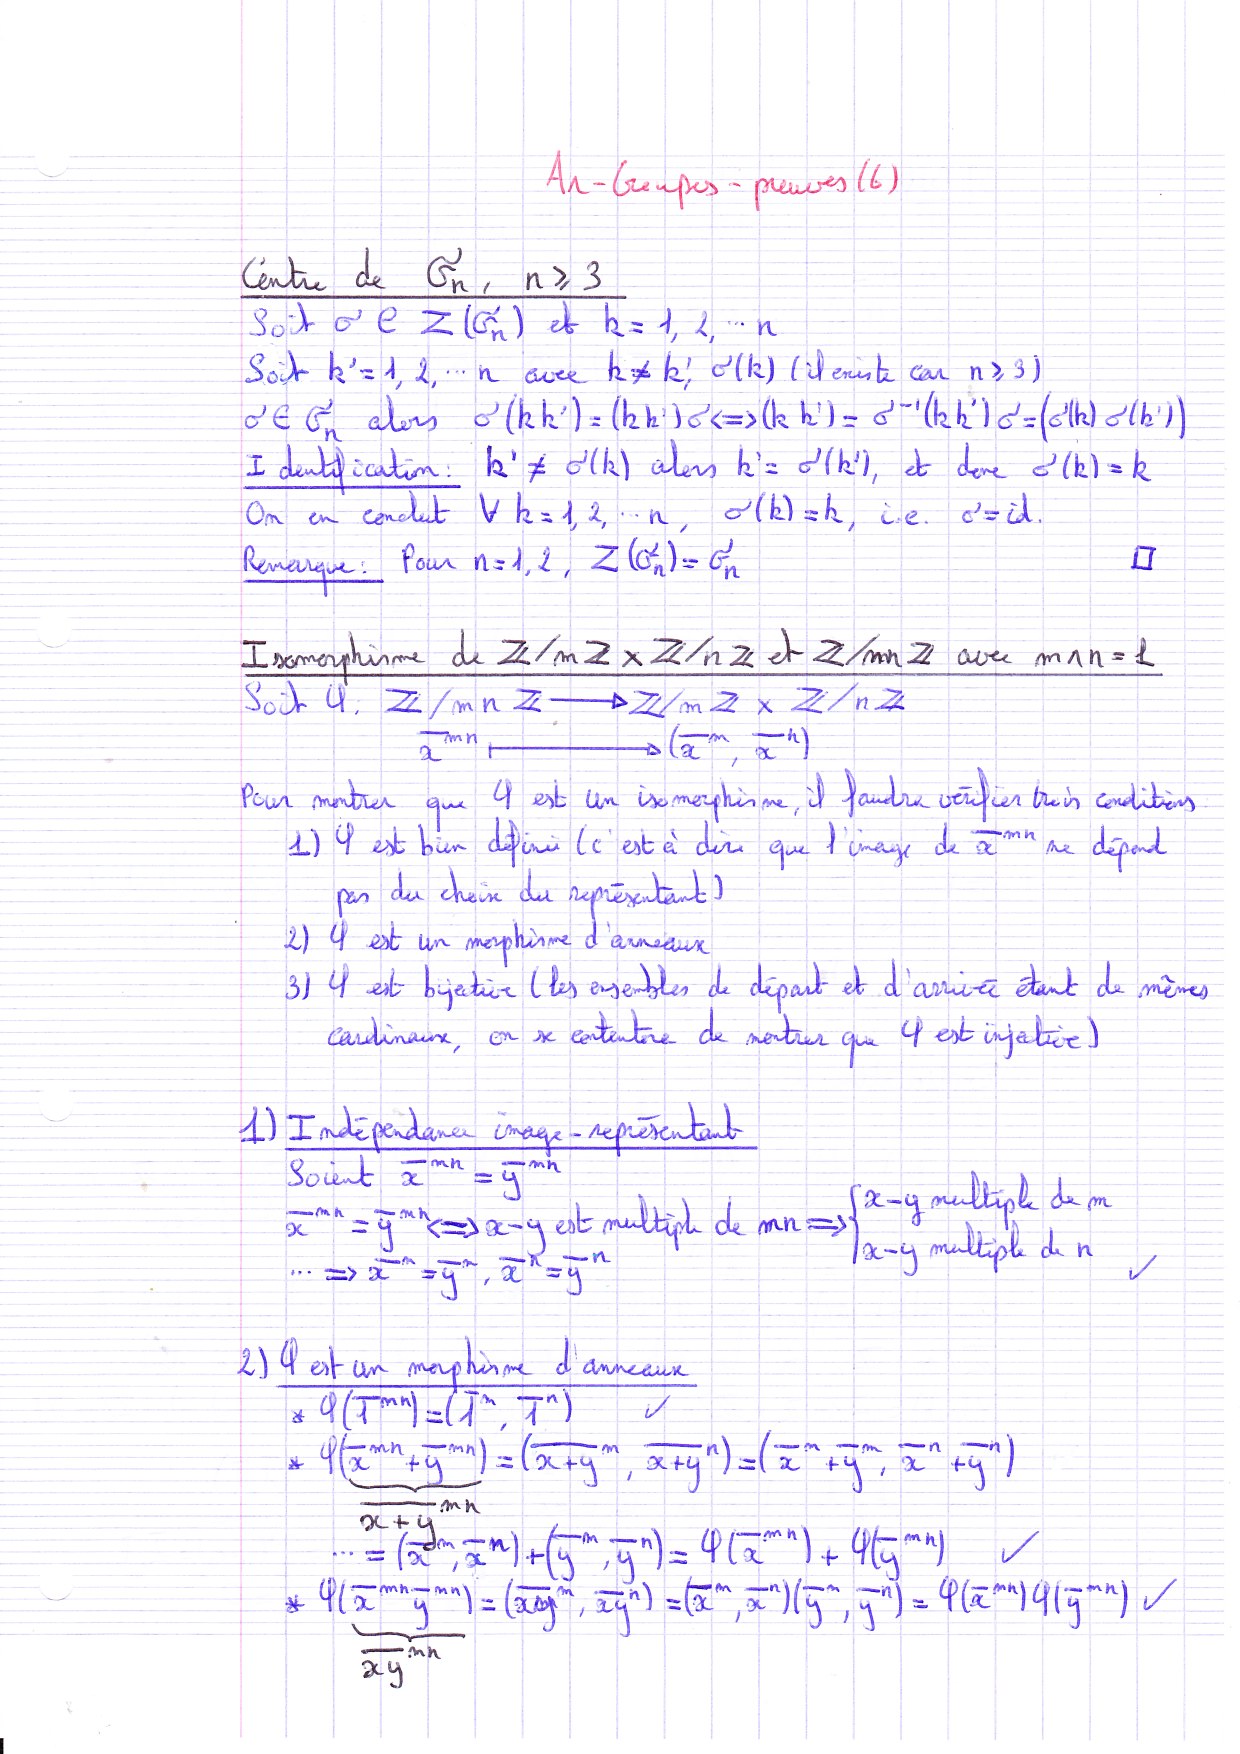 An-Groupes-preuves (6)
Centre de 𝔖n, n ≥ 3
Soit σ ∈ Z(𝔖n) et k = 1, 2, ... n
Soit k' = 1, 2, ... n avec k ≠ k', σ(k) (il existe car n ≥ 3)
σ ∈ 𝔖n alors σ(k k') = (k k')σ <=> (k k') = σ⁻¹(k k')σ = (σ(k) σ(k'))
Identification : k' ≠ σ(k) alors k' = σ(k'), et donc σ(k) = k
On en conclut ∀ k = 1, 2, ... n, σ(k) = k, i.e. σ = id.
Remarque : Pour n = 1, 2, Z(𝔖n) = 𝔖n □
Isomorphisme de ℤ/mℤ × ℤ/nℤ et ℤ/mnℤ avec m∧n = 1
Soit φ: ℤ/mnℤ ⟶ ℤ/mℤ × ℤ/nℤ
x̄^mn ⟼ (x̄^m, x̄^n)
Pour montrer que φ est un isomorphisme, il faudra vérifier trois conditions
1) φ est bien définie (c'est à dire que l'image de x̄^mn ne dépend
pas du choix du représentant)
2) φ est un morphisme d'anneaux
3) φ est bijective (les ensembles de départ et d'arrivée étant de mêmes
cardinaux, on se contentera de montrer que φ est injective)
1) Indépendance image-représentant
Soient x̄^mn = ȳ^mn
x̄^mn = ȳ^mn <=> x-y est multiple de mn => { x-y multiple de m
x-y multiple de n
... => x̄^m = ȳ^m, x̄^n = ȳ^n ✓
2) φ est un morphisme d'anneaux
* φ(1̄^mn) = (1̄^m, 1̄^n) ✓
* φ(x̄^mn + ȳ^mn) = (x̅+̅y̅^m, x̅+̅y̅^n) = (x̄^m + ȳ^m, x̄^n + ȳ^n)
x̅+̅y̅^mn
... = (x̄^m, x̄^n) + (ȳ^m, ȳ^n) = φ(x̄^mn) + φ(ȳ^mn) ✓
* φ(x̄^mn ȳ^mn) = (x̅y̅^m, x̅y̅^n) = (x̄^m, x̄^n)(ȳ^m, ȳ^n) = φ(x̄^mn) φ(ȳ^mn) ✓
x̅y̅^mn